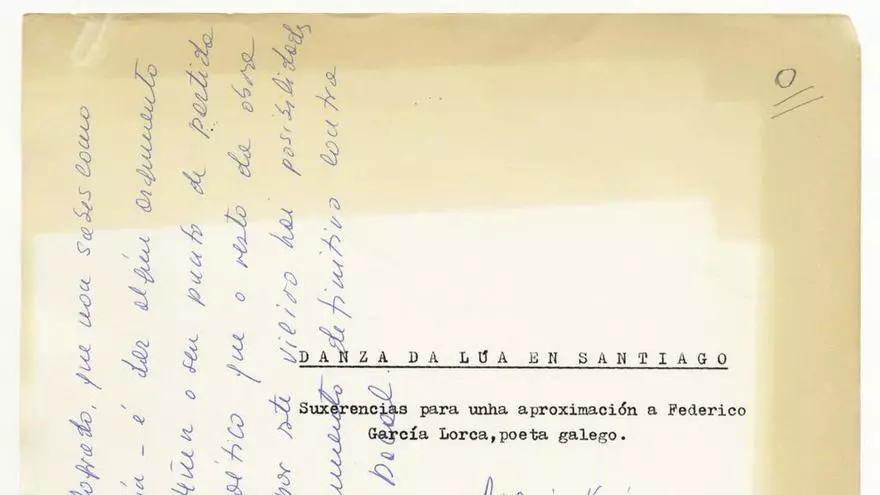 O
DANZA DA LÚA EN SANTIAGO
Suxerencias para unha aproximación a Federico
García Lorca,poeta galego.
que non sabes como
é dar alguén argumento
o seu punto de partida
que o resto da obra
por este vieiro hai posibilidades
definitivo contra